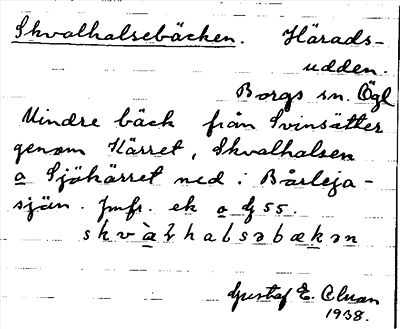 Skvalhalsebäcken. Härads-
udden.
Borgs sn. Ögl
Mindre bäck från Svinsätter
genom Kärret, Skvalhalsen
o Sjökärret ned i Bårleja-
sjön. Jmfr. ek o 55.
skvàlhalsəbækən
Gustaf E. Clman
1938.